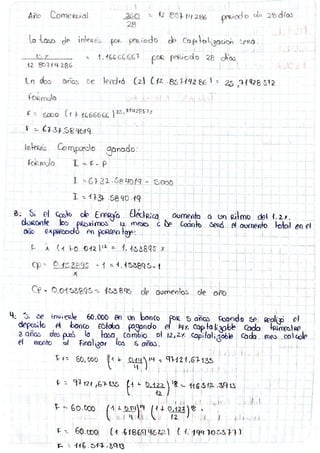 Año Comercial 360 = 12 85714286 periodo de 28 dias
28
La tasa de interés por periodo de Capitalización será.
15 % = 1.16666667 por periodo 28 dias
12 85714286
En dos años se tendrá (2) (12.85714286) = 25,71428572
Formula
F = 5000 (1+ 1666666)
F = 6732.584019
Interés Compuesto ganado:
Formula I = F - P
I = 6732.584019 - 5000
I = 1732.5840 19
3. Si el Costo de Energía Eléctrica aumenta a un ritmo del 1.2%.
durante los próximos 12 meses ¿ De Cuánto será el aumento total en el
año expresado en porcentaje:
F = x (1 + 0.012)12 = 1.153895 x
Cp = 0.153895 - 1 = 1.153895-1
x
Cp = 0.0153895 = 153895 de aumentos de año
4. Si se invierte 60.000 en un banco por 5 años Cuando se realizó el
deposito el banco estaba pagando el 14% Capitalizable Cada trimestre
3 años después la tasa cambio al 12,2% capitalizable cada mes calcule
el monto al finalizar los 5 años.
F = 60,000 (1 + 0.14)14 = 97121.67135
4
F = 97121,67135 (1 + 0.122)18 = 116517.3913
12
F = 60.000 (1 + 0.14)14 (1 + 0.122)18
4 12
F = 60.000 (1.618694522) (1.194705577)
F = 116.517.3913